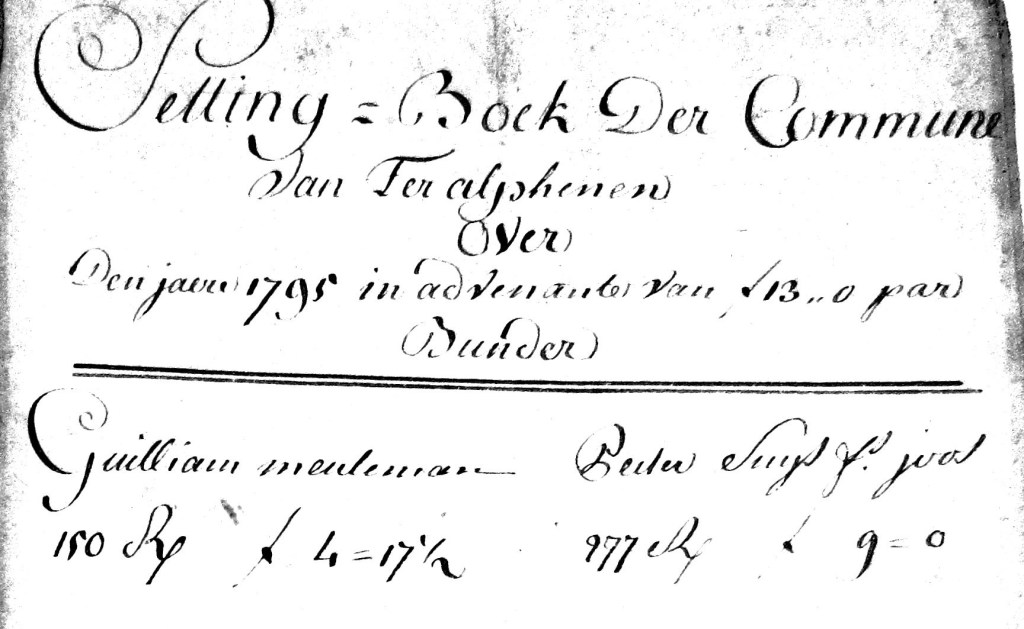 Setting = Boek Der Commune
Van Ter alphenen
Over
Den jaere 1795 in advenante van f 13,,0 par
Bunder
Guilliam meuleman
150 R f 4=17½
Peeter Suys fs. joos
277 R f 9=0